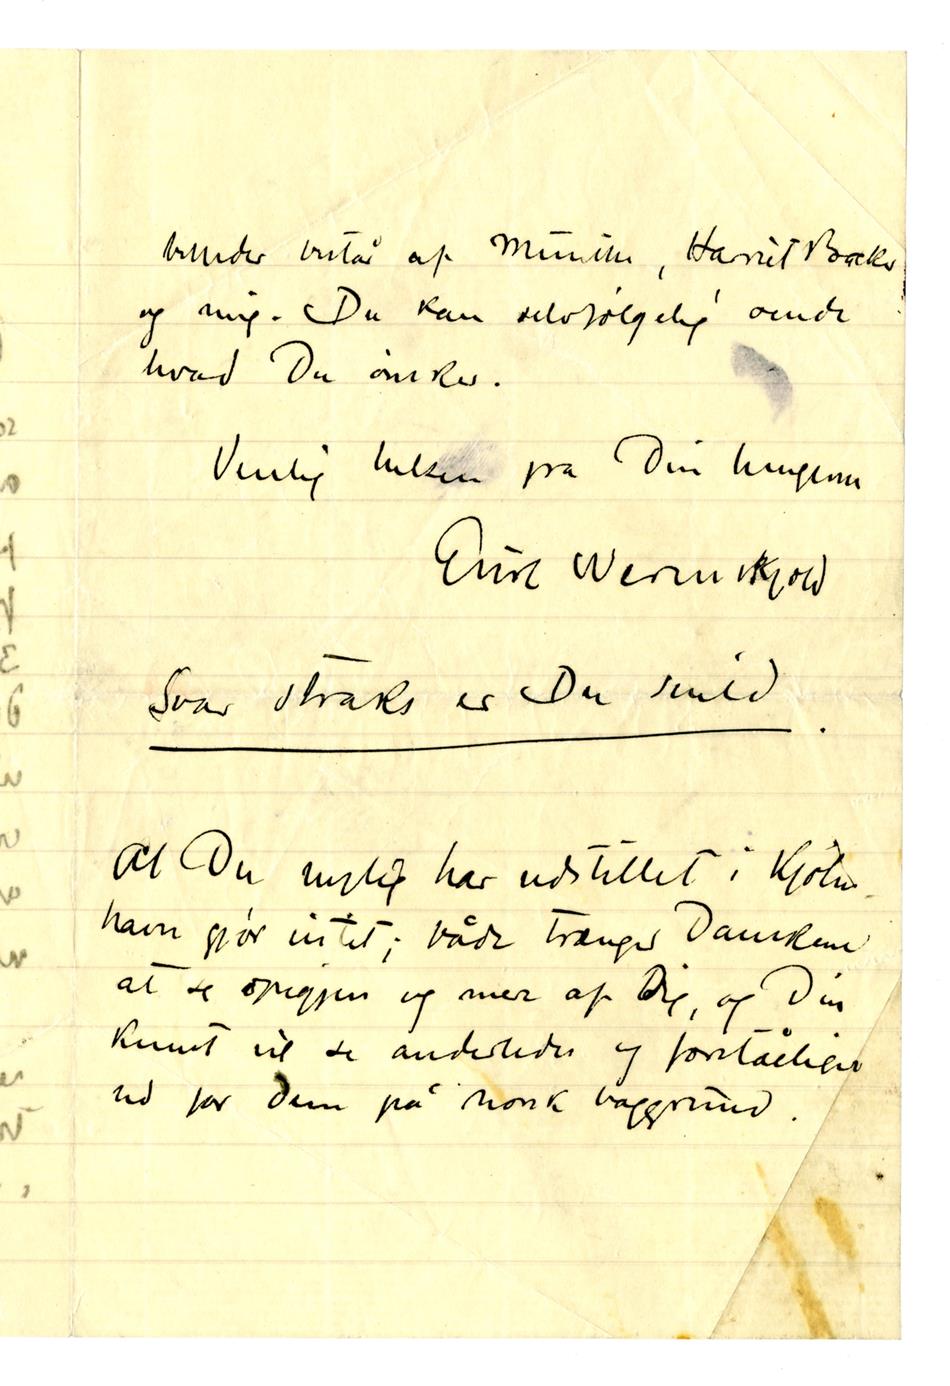 billeder består af Munthe, Harriet Backer
og mig. Du kan selvfølgelig sende
hvad Du ønsker.
Venlig hilsen fra Din hengivne
Erik Werenskjold
Svar straks er Du snild.
At Du nylig har udstillet i Kjøben-
havn gjør intet; både trænger Danskene
at se opigjen og mer af Dig, og Din
kunst vil se anderledes og forståeligere
ud for dem på norsk baggrund.